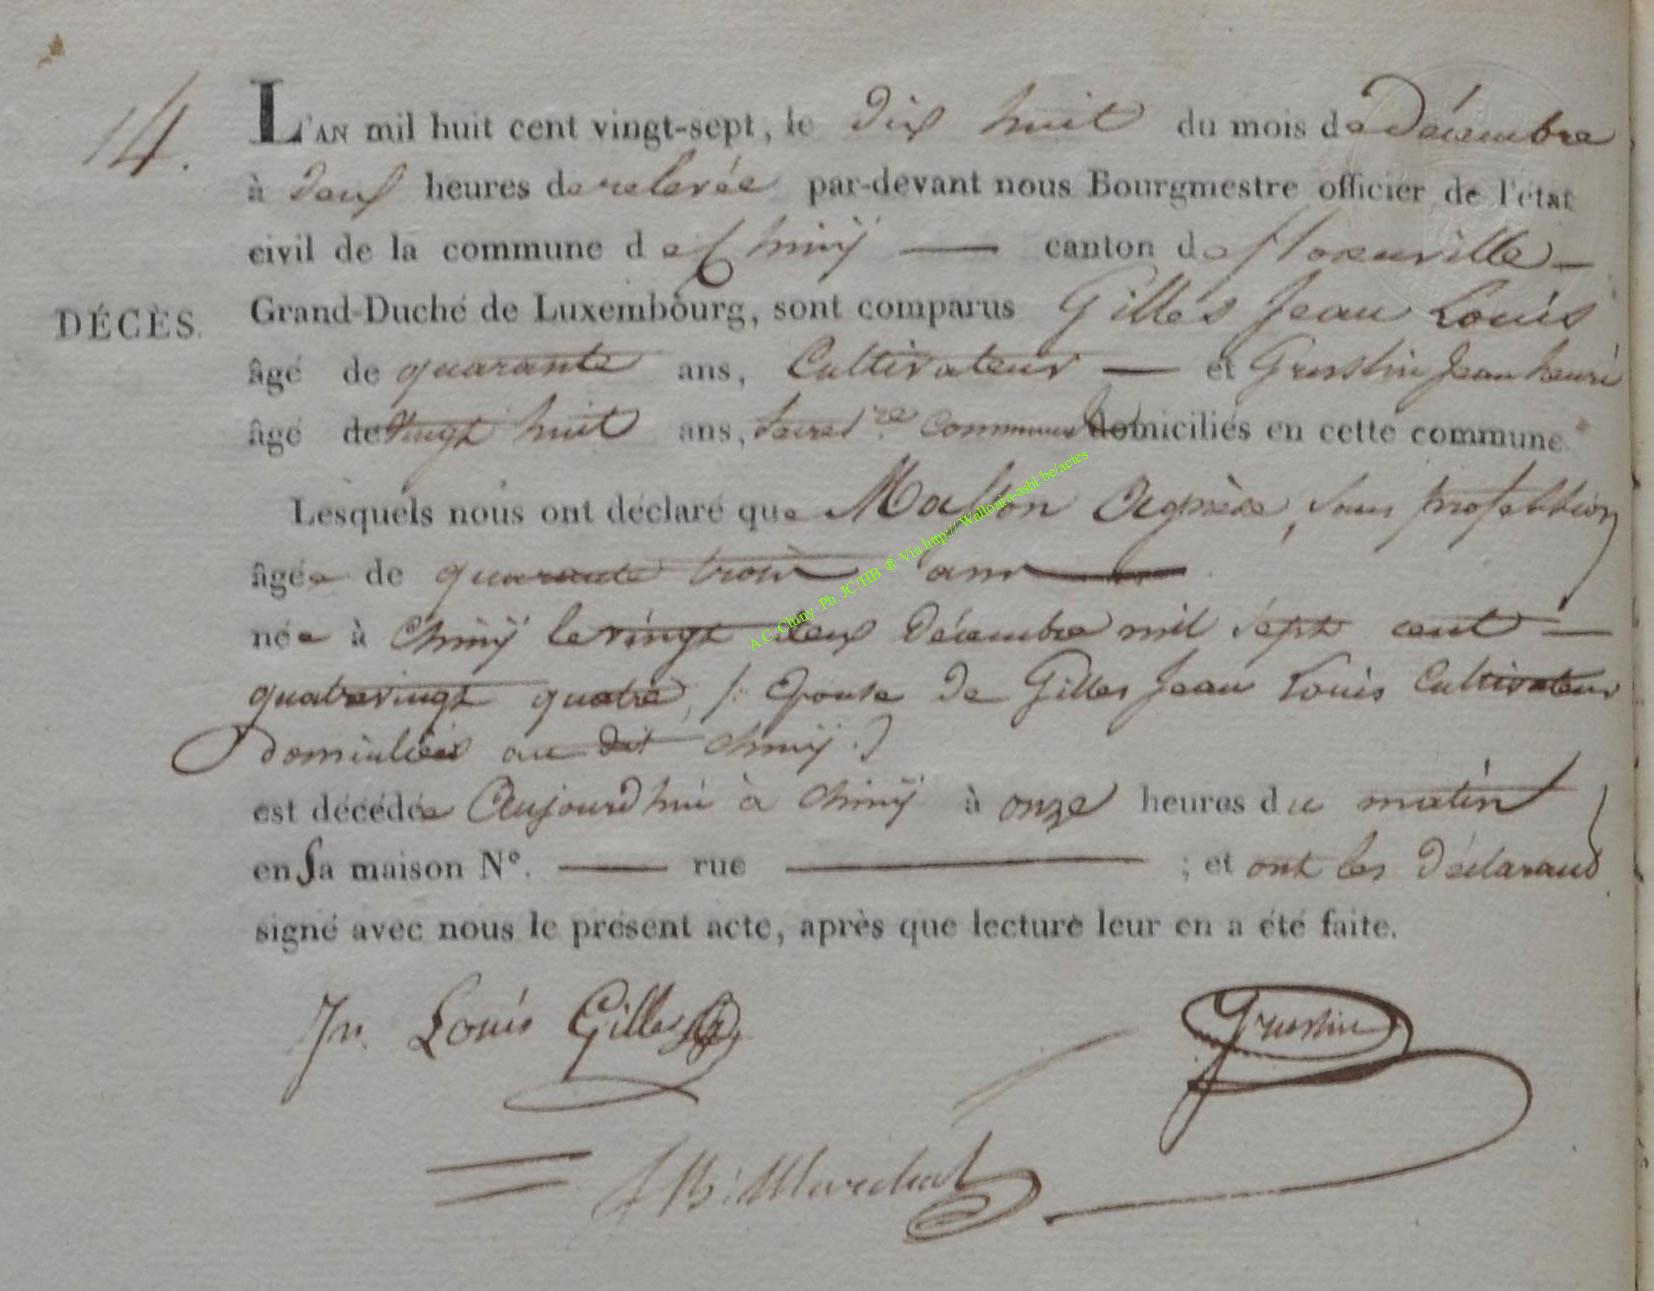 14.
L'AN mil huit cent vingt-sept, le dix huit du mois de Décembre
à deux heures de relevée par-devant nous Bourgmestre officier de l'état
civil de la commune de Chiny — canton de florenville —
DÉCÈS.
Grand-Duché de Luxembourg, sont comparus Gilles Jean Louis
âgé de quarante ans, Cultivateur — et Grustin Jean henri
âgé de vingt huit ans, Secret.re communal domiciliés en cette commune.
Lesquels nous ont déclaré que Masson Agnèse, sans profession
âgée de quarante trois ans
née à Chiny le vingt deux Décembre mil sept cent —
quatrevingt quatre, /: Epouse de Gilles Jean Louis Cultivateur
domiciliés au dit chiny :/
est décédée Aujourd'hui à chiny à onze heures du matin
en sa maison N°. — rue — ; et ont les déclarans
signé avec nous le présent acte, après que lecture leur en a été faite.
Jn. Louis Gilles
Grustin
Marechal
A.C. Chiny Ph. JC/HB @ Via http://Wallonia-asbl.be/actes